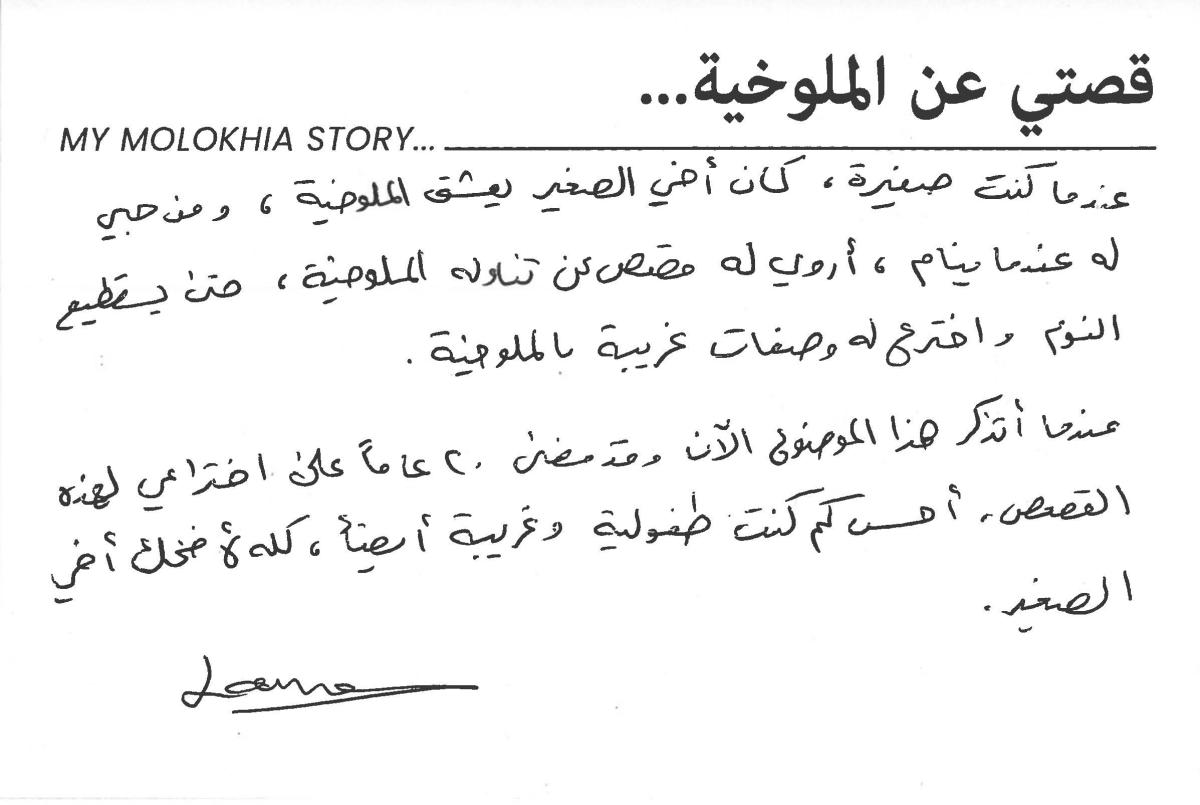 قصتي عن الملوخية...
MY MOLOKHIA STORY...
عندما كنت صغيرة، كان أخي الصغير يعشق الملوخية، ومن حبي
له عندما ينام، أروي له قصص عن تناوله الملوخية، حتى يستطيع
النوم واخترع له وصفات غريبة بالملوخية.
عندما أتذكر هذا الموضوع الآن وقد مضى ٢٠ عاماً على اختراعي لهذه
القصص. أحس كم كنت طفولية وغريبة أيضاً، كله لأضحك أخي
الصغير.
Lama